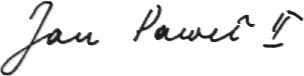 Jan Paweł II